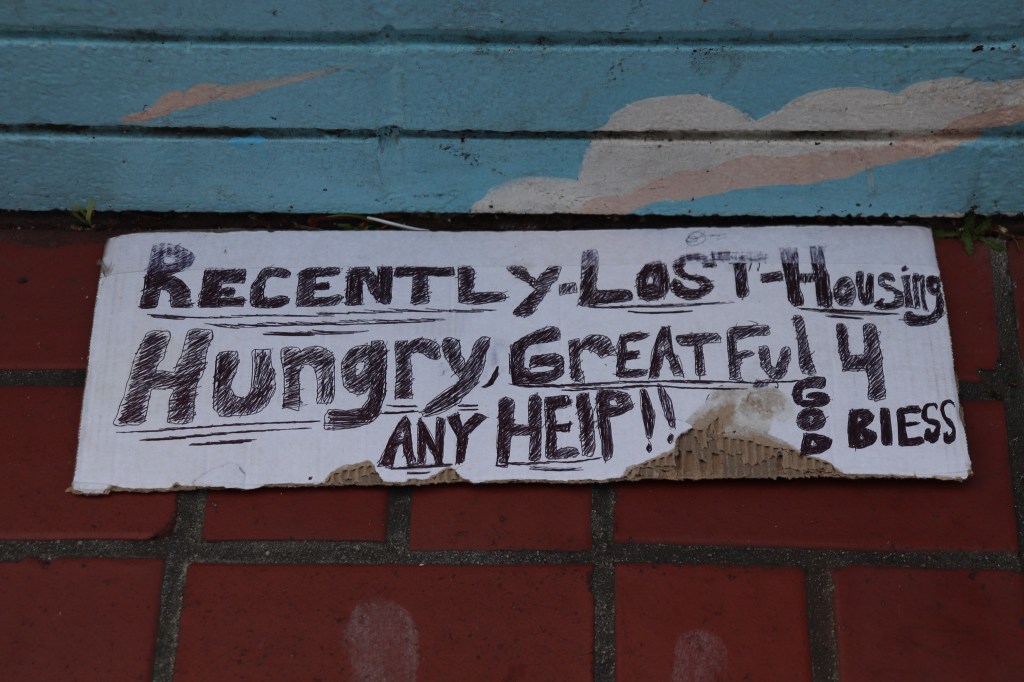 RECENTLY-LOST-Housing
Hungry, GREATFul 4
ANY HElP!! GOD BlESS